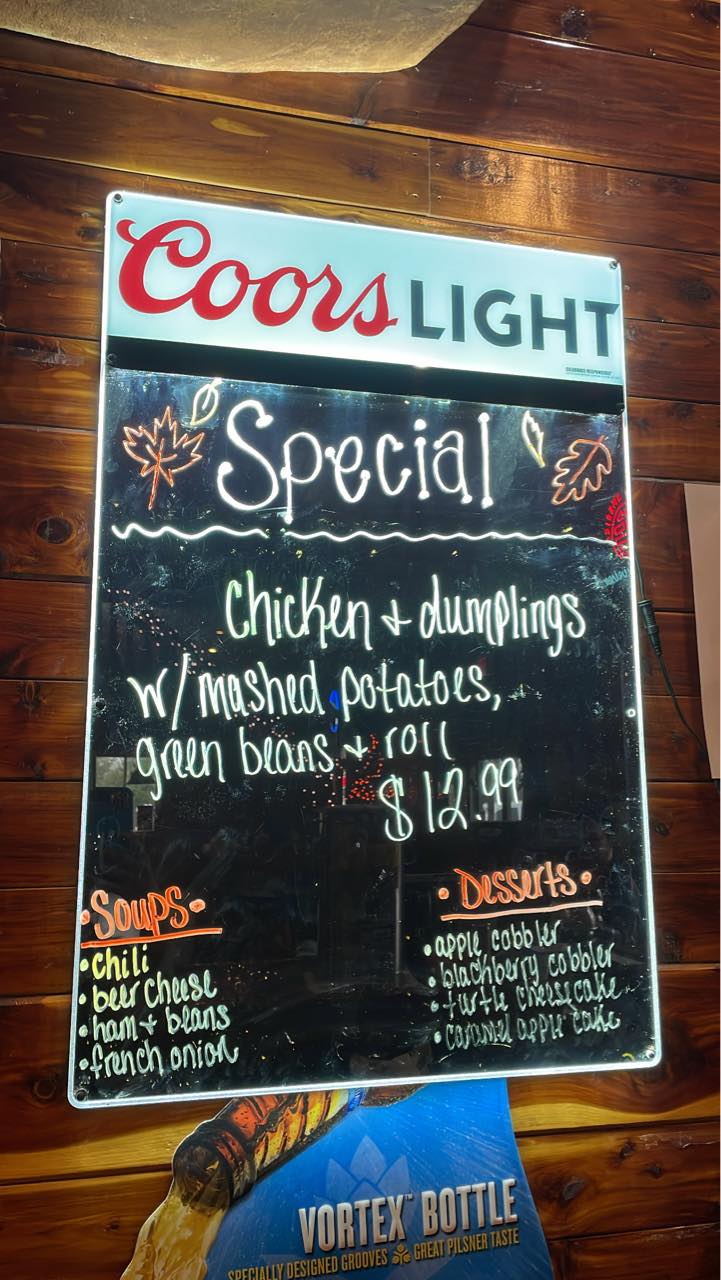 Coors LIGHT
Special
Chicken + dumplings
w/ mashed potatoes,
green beans + roll
$12.99
•Soups•
•chili
•beer cheese
•ham + beans
•french onion
•Desserts•
•apple cobbler
•blackberry cobbler
•turtle cheesecake
•caramel apple cake
VORTEX™ BOTTLE
SPECIALLY DESIGNED GROOVES GREAT PILSNER TASTE